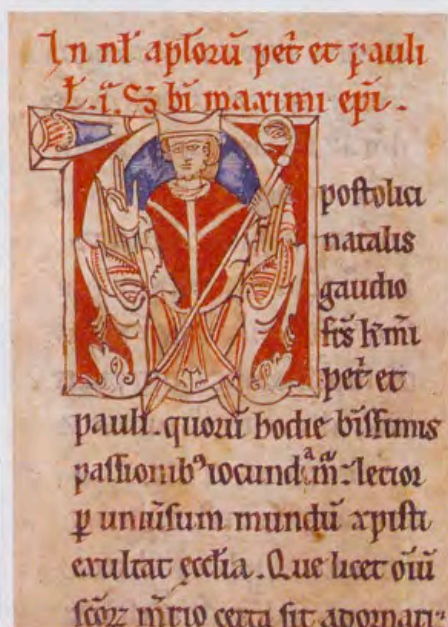 In nł aplorū pet̄ et pauli
Ł. i. S bi maximi epi.
A
postolici
natalis
gaudio
frs kmi
pet̄ et
pauli. quorū hodie bissimis
passionibꝰ iocund
ꝑ uniūsum mundū xpisti
exultat ęcclia. Que licet oiū
certa sit